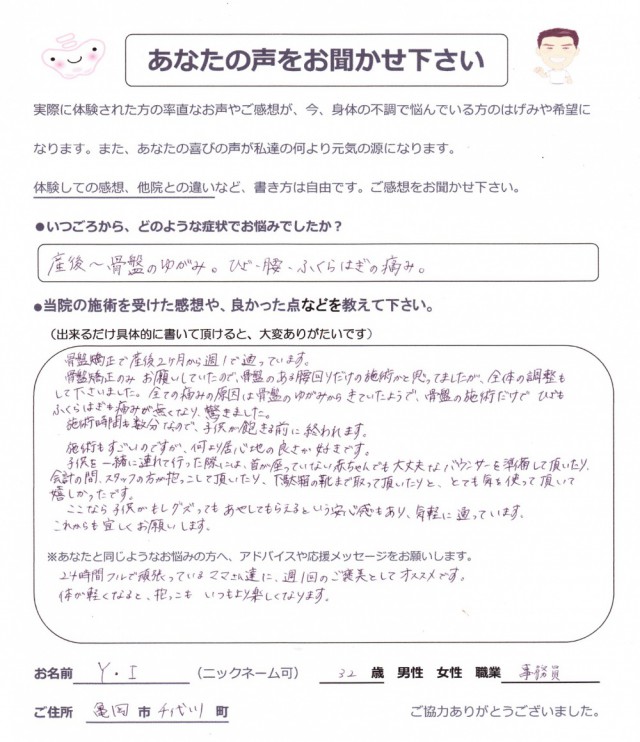 あなたの声をお聞かせ下さい
実際に体験された方の率直なお声やご感想が、今、身体の不調で悩んでいる方のはげみや希望に
なります。また、あなたの喜びの声が私達の何より元気の源になります。
体験しての感想、他院との違いなど、書き方は自由です。ご感想をお聞かせ下さい。
●いつごろから、どのような症状でお悩みでしたか？
産後～骨盤のゆがみ。ひざ・腰・ふくらはぎの痛み。
●当院の施術を受けた感想や、良かった点などを教えて下さい。
（出来るだけ具体的に書いて頂けると、大変ありがたいです）
骨盤矯正で産後2ヶ月から週1で通っています。
骨盤矯正のみお願いしていたので、骨盤のある腰回りだけの施術かと思ってましたが、全体の調整も
して下さいました。全ての痛みの原因は骨盤のゆがみからきていたようで、骨盤の施術だけでひざも
ふくらはぎも痛みが無くなり、驚きました。
施術時間も数分なので、子供が飽きる前に終われます。
施術もすごいのですが、何より居心地の良さが好きです。
子供を一緒に連れて行った際には、首が座っていない赤ちゃんでも大丈夫なバウンサーを準備して頂いたり、
会計の間、スタッフの方が抱っこして頂いたり、下駄箱の靴まで取って頂いたりと、とても気を使って頂いて
嬉しかったです。
ここなら子供がもしグズってもあやしてもらえるという安心感もあり、気軽に通っています。
これからも宜しくお願いします。
※あなたと同じようなお悩みの方へ、アドバイスや応援メッセージをお願いします。
24時間フルで頑張っているママさん達に、週1回のご褒美としてオススメです。
体が軽くなると、抱っこもいつもより楽しくなります。
お名前 Y・I （ニックネーム可） 32 歳 男性 女性 職業 事務員
ご住所 亀岡 市 千代川 町 ご協力ありがとうございました。